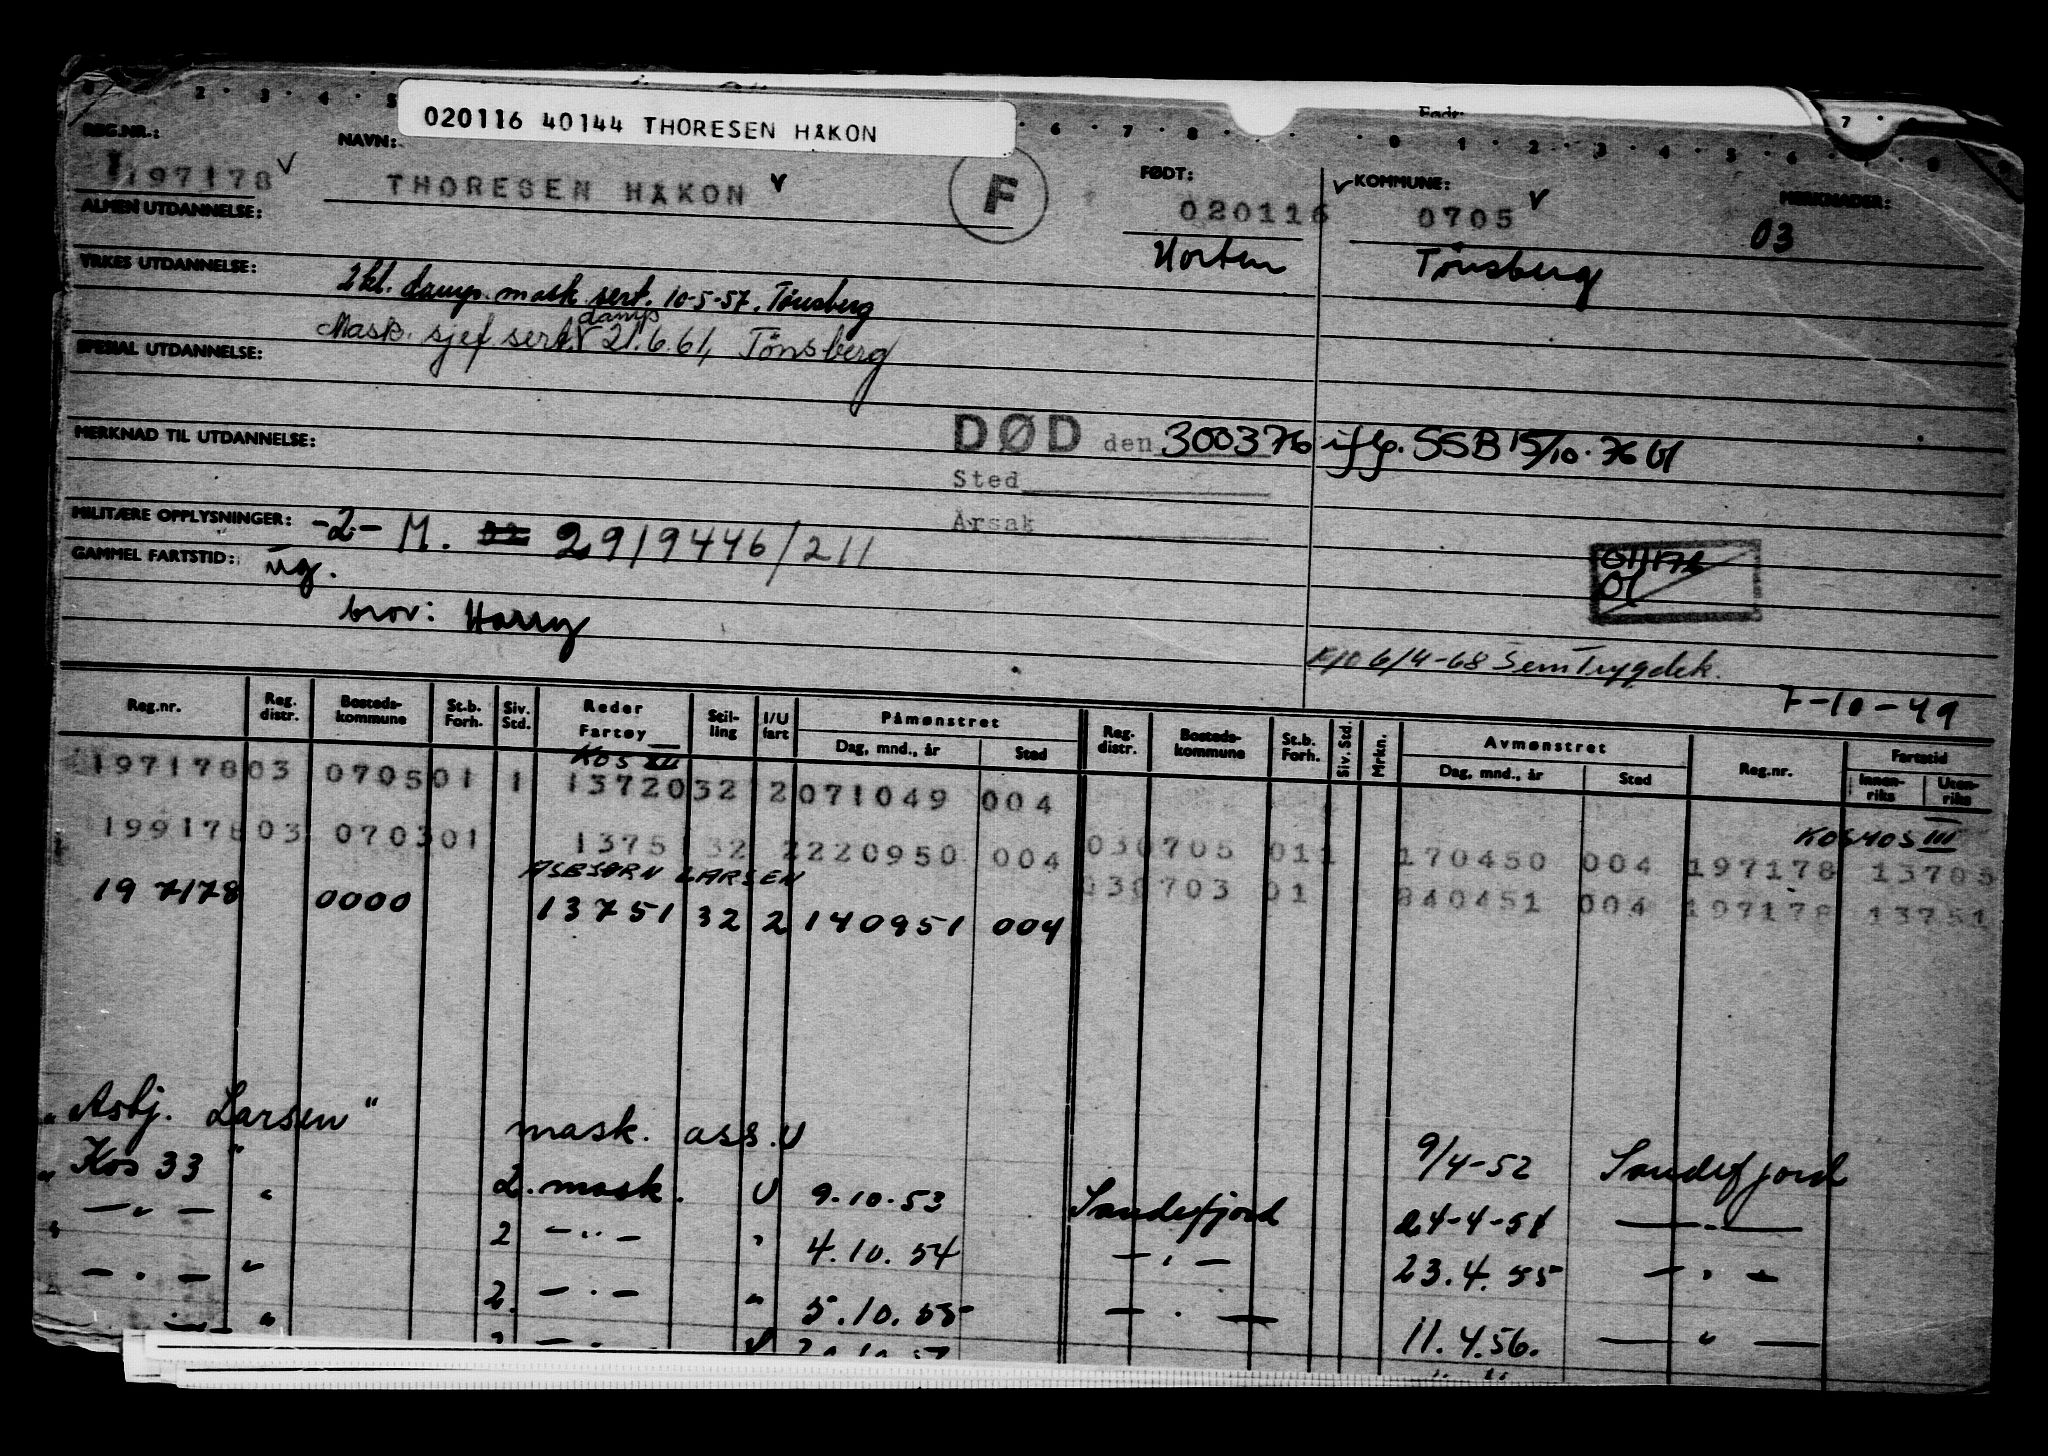 020116 40144 THORESEN HAKON
Født:
REG.NR.: NAVN: FØDT: KOMMUNE: MERKNADER:
197178 THORESEN HÅKON F 020116 0705 03
ALMEN UTDANNELSE: Horten Tønsberg
YRKES UTDANNELSE: 2 kl. damp. mask. sert. 10-5-57. Tønsberg
damp
Mask. sjef sert. 21.6.61, Tönsberg
SPESIAL UTDANNELSE:
MERKNAD TIL UTDANNELSE: DØD den 300376 iflg. SSB 15/10.76
Sted
Årsak
MILITÆRE OPPLYSNINGER: -2- M. 02 2919446/211
GAMMEL FARTSTID: ug.
bror: Harry
011176
6/4-68 Sem Trygdek.
7-10-49
Reg.nr. Reg. distr. Bosteds-kommune St.b. Forh. Siv. Std. Reder Fartøy Stil-ling I/U fart Påmønstret Reg. distr. Bosteds-kommune St.b. Forh. Siv. Std. Mrkn. Avmønstret Reg.nr. Fartstid
Dag, mnd., år Sted Dag, mnd., år Sted Innen-riks Uten-riks
KOS
197178 03 0705 01 1 13720 32 2 071049 004
KOSMOS III
199178 03 0703 01 1375 32 2 220950 004 030705 011 170450 004 197178 13705
ASBJØRN LARSEN
030703 01 840451 004 197178 13751
197178 0000 13751 32 2 140951 004
"Asbj. Larsen" mask. ass. U 9/4-52 Sandefjord
"Kos 33" 2. mask. U 9.10.53 Sandefjord 24-4-54 —"—
—"— " 2 —"— " 4.10.54 —"— 23.4.55 —"—
—"— " 2. —"— " 5.10.55 —"— 11.4.56. —"—